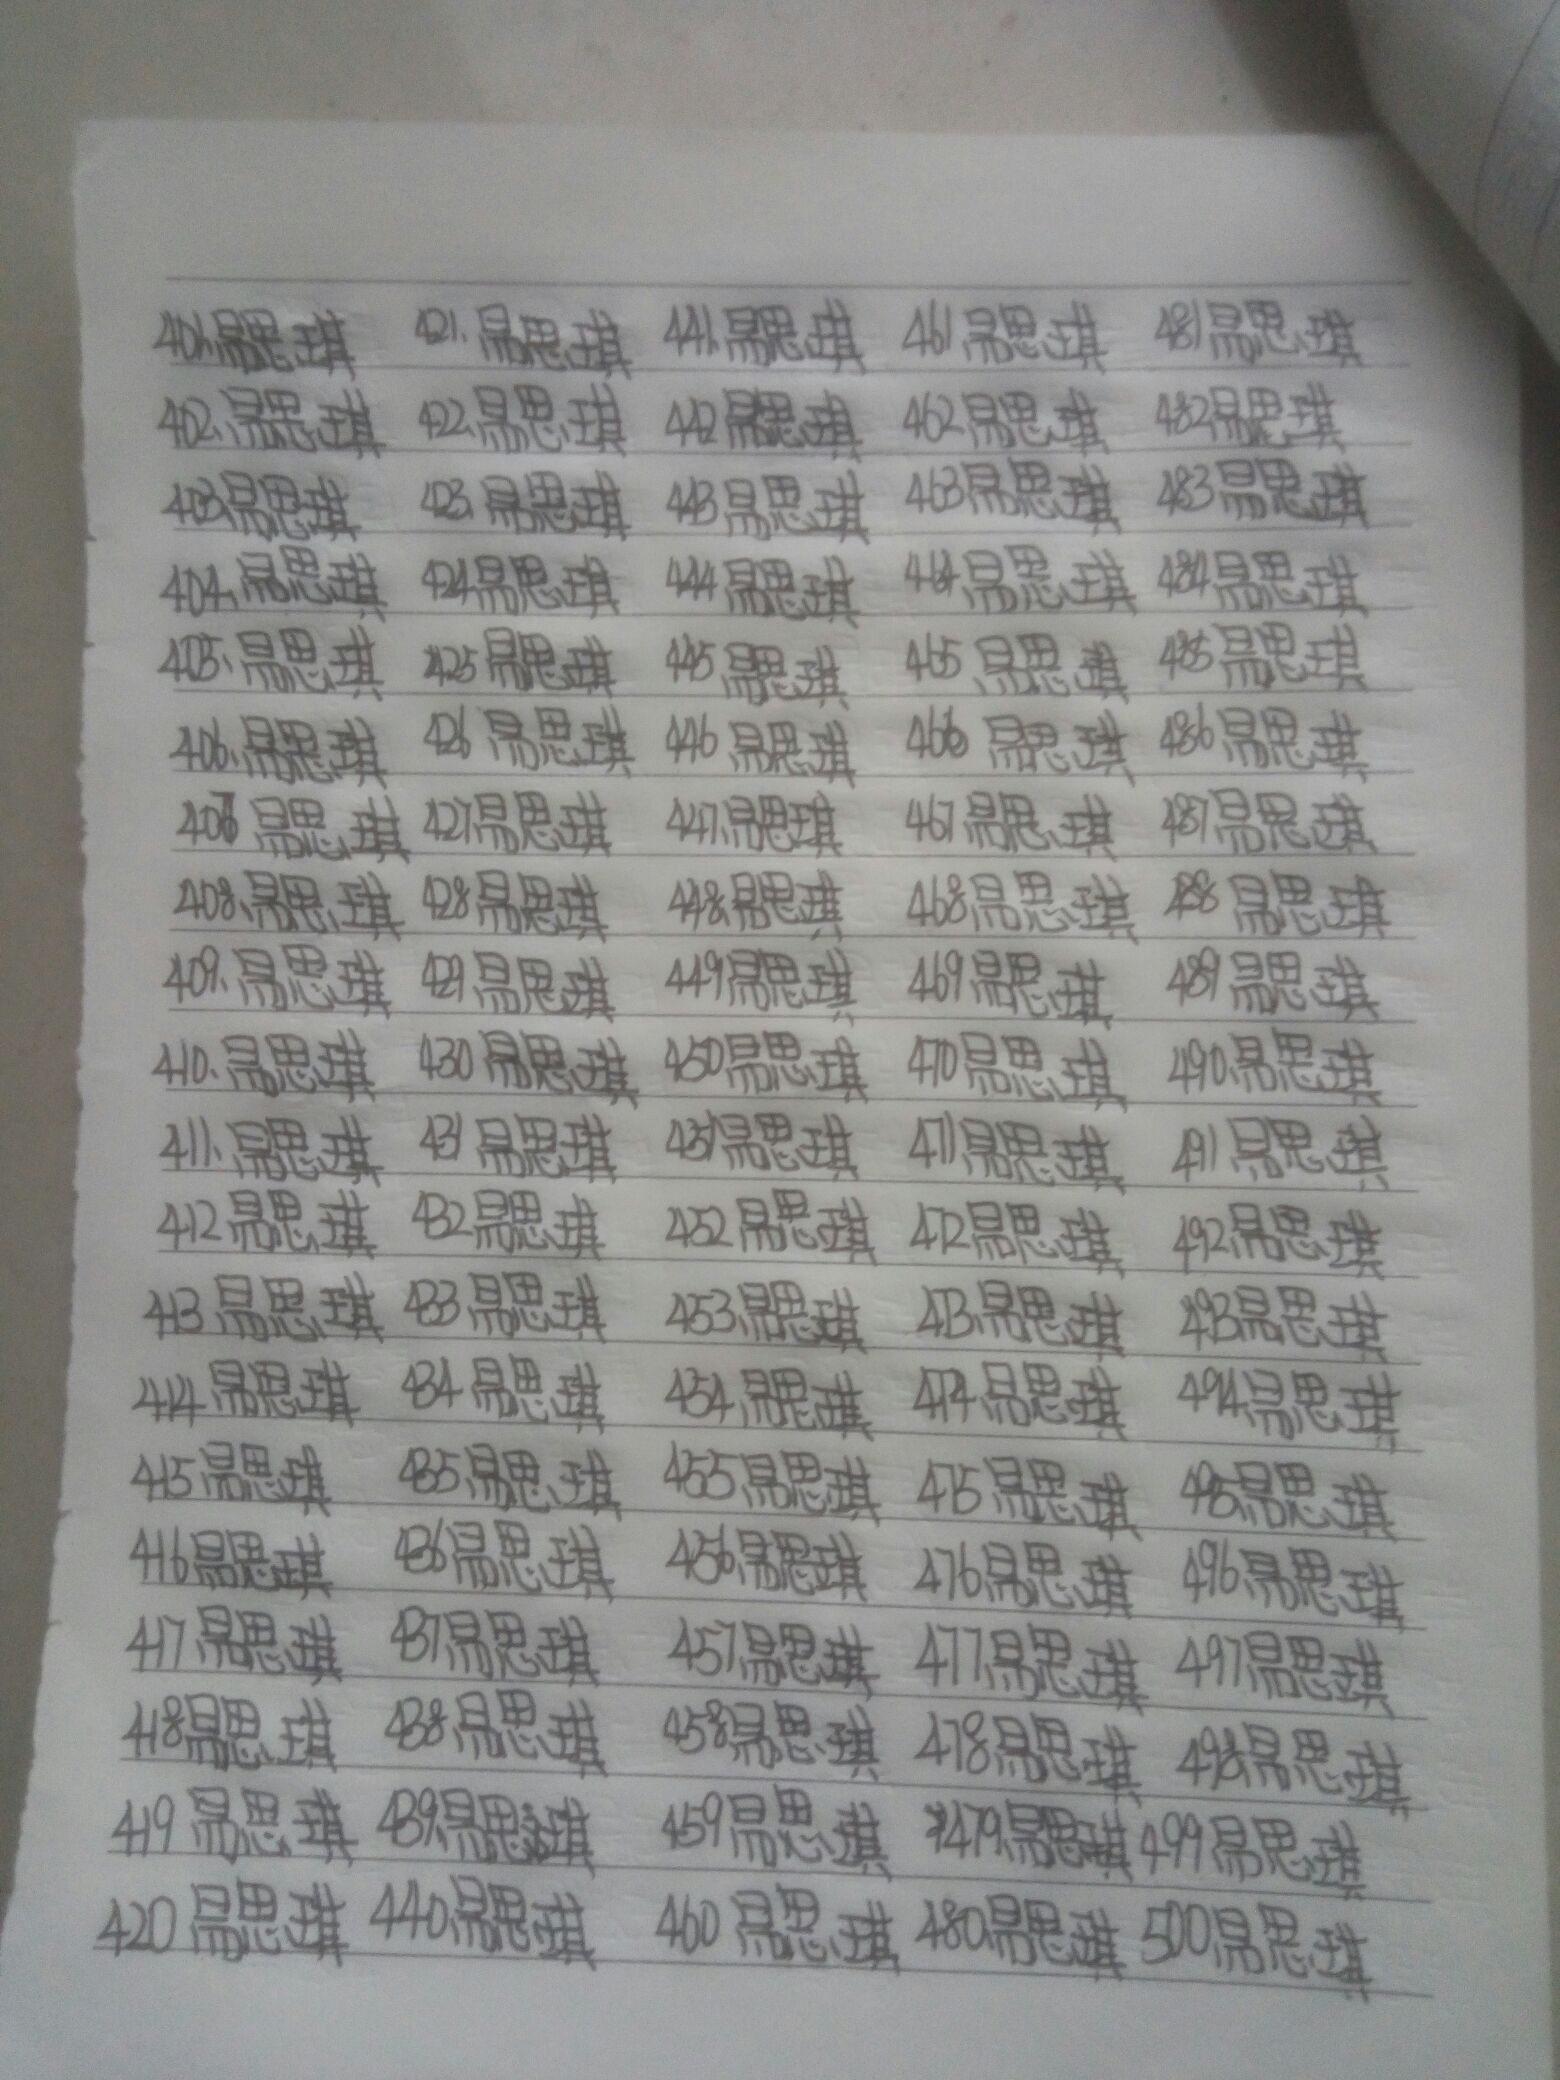 401.易思琪 421.易思琪 441.易思琪 461易思琪 481易思琪
402.易思琪 422.易思琪 442易思琪 462易思琪 482易思琪
403.易思琪 423.易思琪 443易思琪 463易思琪 483易思琪
404.易思琪 424易思琪 444易思琪 464易思琪 484易思琪
405.易思琪 425易思琪 445易思琪 465易思琪 485易思琪
406.易思琪 426易思琪 446易思琪 466易思琪 486易思琪
407易思琪 427易思琪 447.易思琪 467易思琪 487易思琪
408.易思琪 428易思琪 448.易思琪 468易思琪 488易思琪
409.易思琪 429易思琪 449易思琪 469易思琪 489易思琪
410.易思琪 430易思琪 450易思琪 470易思琪 490易思琪
411.易思琪 431易思琪 451易思琪 471易思琪 491易思琪
412易思琪 432易思琪 452易思琪 472易思琪 492易思琪
413易思琪 433易思琪 453易思琪 473易思琪 493易思琪
414易思琪 434易思琪 454易思琪 474易思琪 494易思琪
415易思琪 435易思琪 455易思琪 475易思琪 495易思琪
416易思琪 436易思琪 456易思琪 476易思琪 496易思琪
417易思琪 437易思琪 457易思琪 477易思琪 497易思琪
418易思琪 438易思琪 458易思琪 478易思琪 498易思琪
419易思琪 439.易思琪 459易思琪 479易思琪 499易思琪
420易思琪 440易思琪 460易思琪 480易思琪 500易思琪